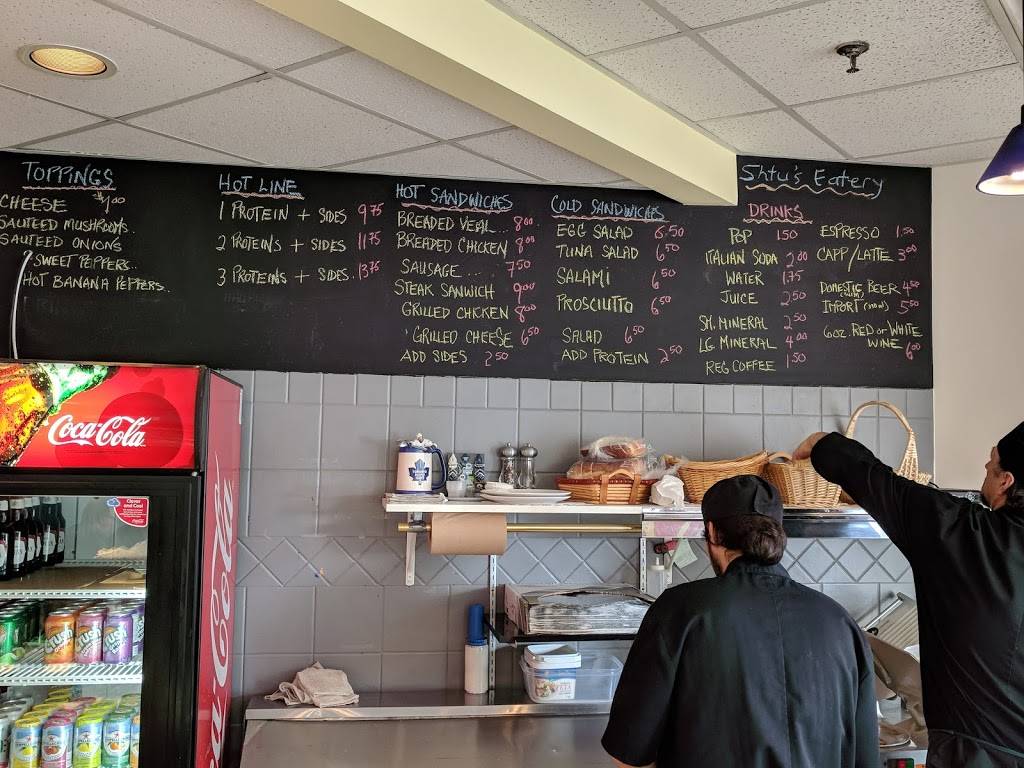 TOPPINGS
CHEESE $1.00
SAUTEED MUSHROOMS..
SAUTEED ONIONS
SWEET PEPPERS..
HOT BANANA PEPPERS..
HOT LINE
1 PROTEIN + SIDES 9.75
2 PROTEINS + SIDES 11.75
3 PROTEINS + SIDES. 13.75
HOT SANDWICHES
BREADED VEAL... 8.00
BREADED CHICKEN 8.00
SAUSAGE ... 7.50
STEAK SANWICH 9.00
GRILLED CHICKEN 8.00
GRILLED CHEESE 6.50
ADD SIDES 2.50
COLD SANDWICHES
EGG SALAD 6.50
TUNA SALAD 6.50
SALAMI 6.50
PROSCIUTTO 6.50
SALAD 6.50
ADD PROTEIN 2.50
Shtu's Eatery
DRINKS
POP 1.50
ITALIAN SODA 2.00
WATER 1.75
JUICE 2.50
SM. MINERAL 2.50
LG MINERAL 4.00
REG COFFEE 1.50
ESPRESSO 1.50
CAPP/LATTE 3.00
DOMESTIC BEER 4.50
IMPORT 5.50
6oz. RED or WHITE
WINE 6.00
Coca-Cola
Coca-Cola
crush